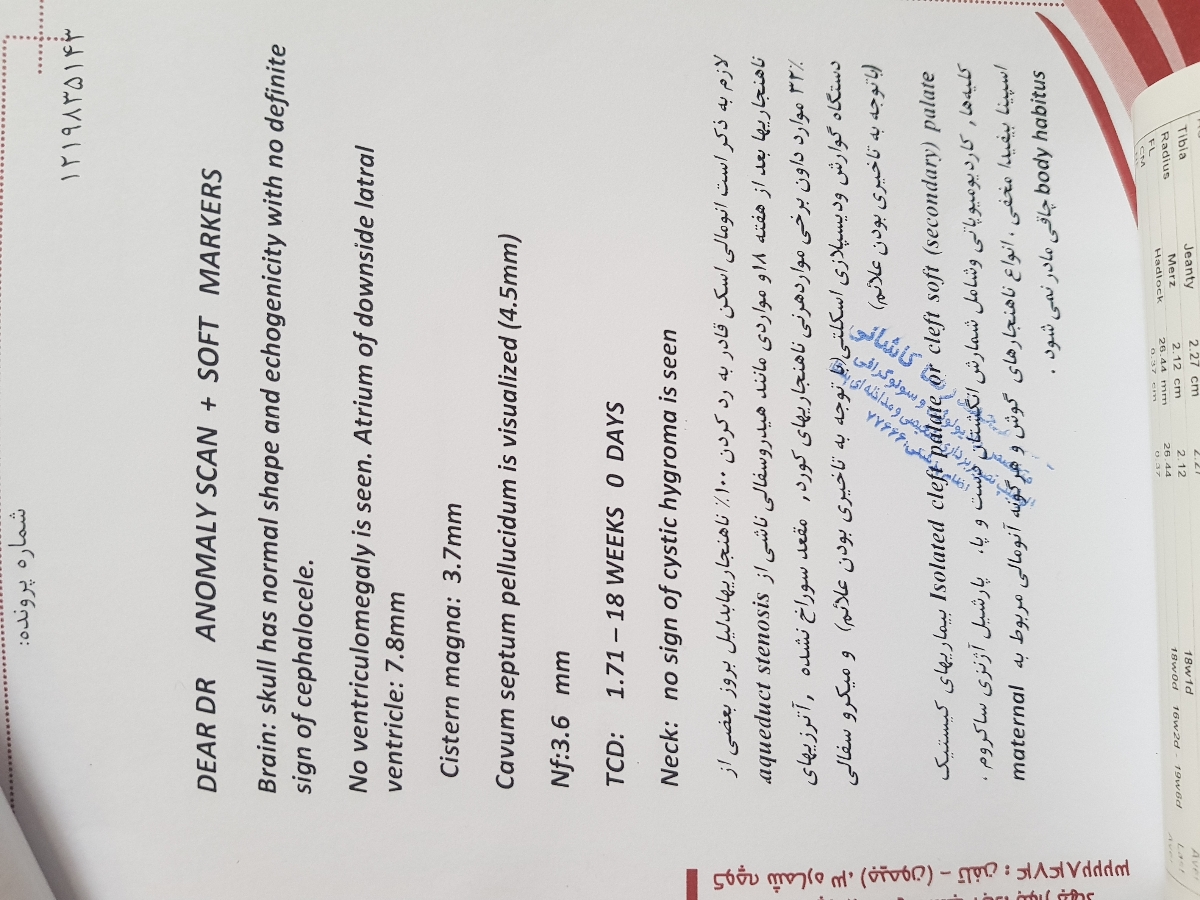 شماره پرونده:
۱۲۱۹۸۳۵۱۴۳
DEAR DR ANOMALY SCAN + SOFT MARKERS
Brain: skull has normal shape and echogenicity with no definite
sign of cephalocele.
No ventriculomegaly is seen. Atrium of downside latral
ventricle: 7.8mm
Cistern magna: 3.7mm
Cavum septum pellucidum is visualized (4.5mm)
Nf:3.6 mm
TCD: 1.71 – 18 WEEKS 0 DAYS
Neck: no sign of cystic hygroma is seen
لازم به ذکر است انومالی اسکن قادر به رد کردن ۱۰۰٪ ناهنجاریهابدلیل بروز بعضی از
ناهنجاریها بعد از هفته ۱۸و مواردی مانند هیدروسفالی ناشی از aqueduct stenosis
۳۲٪ موارد داون برخی مواردهرنی ناهنجاریهای کورد, مقعد سوراخ نشده ,آترزیهای
دستگاه گوارش ودیسپلازی اسکلتی(با توجه به تاخیری بودن علائم) و میکرو سفالی
(باتوجه به تاخیری بودن علائم)
بیماریهای کیستیک Isolated cleft palate or cleft soft (secondary) palate
کلیه‌ها, کاردیومیوپاتی وشامل شمارش انگشتان دست و پا، پارشیل آژنزی ساکروم ،
اسپینا بیفیدا مخفی ، انواع ناهنجارهای گوش و هرگونه آنومالی مربوط به maternal
body habitusچاقی مادر نمی شود .
کاشانی
۷۷۶۶۶
کوچه شماره ۳، - تلفن :
Jeanty 2.27 cm 2.27 18w1d
Tibia Merz 2.12 cm 2.12 18w0d 16w2d - 19w6d
Radius Hadlock 26.44 mm 26.44
FL